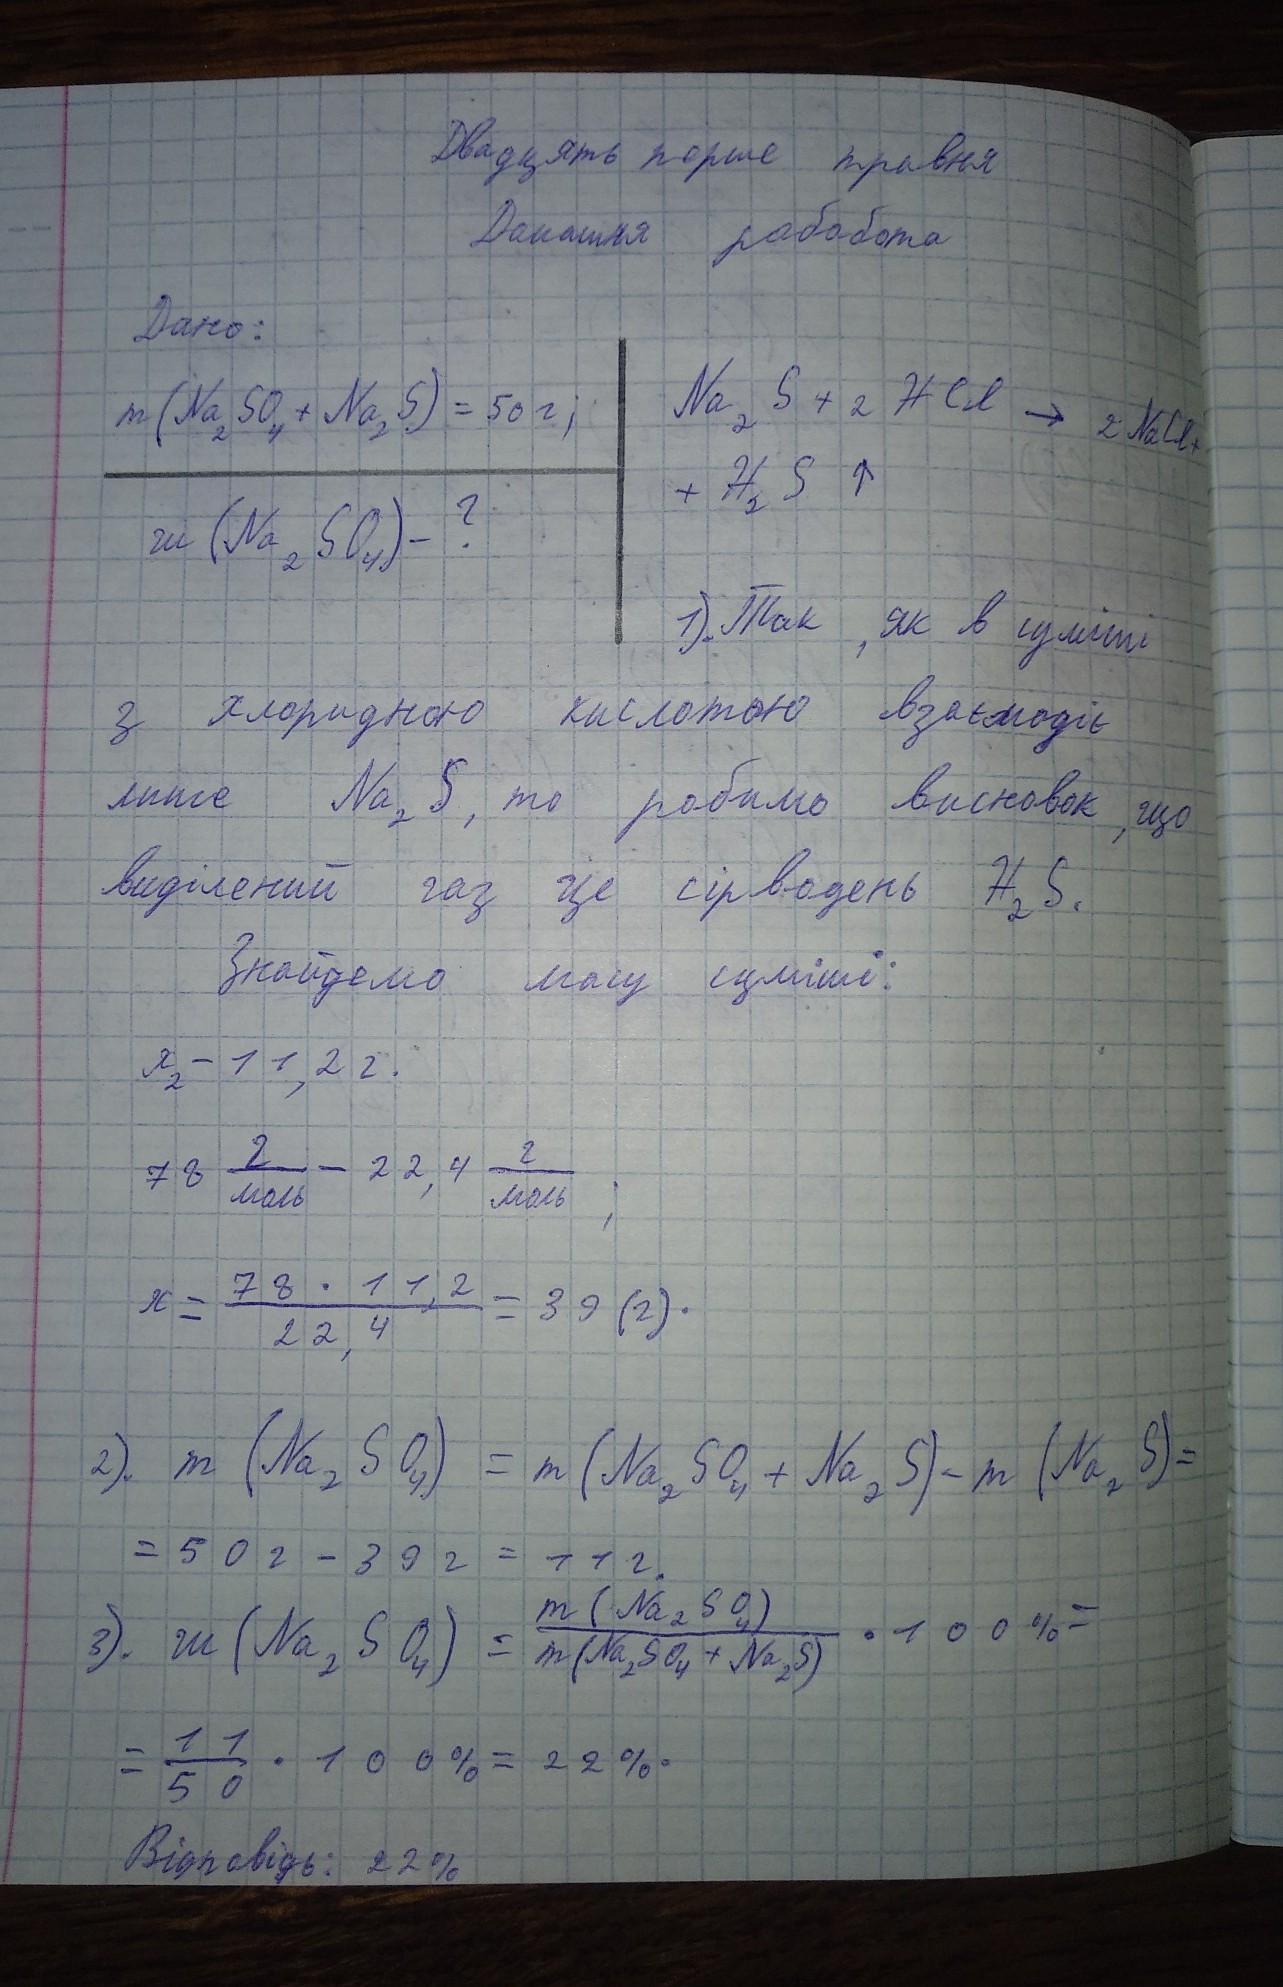 Двадцять перше травня
Домашня рабобота
Дано:
m(Na₂SO₄ + Na₂S) = 50 г;
ш (Na₂SO₄) - ?
Na₂S + 2 HCl → 2 NaCl +
+ H₂S ↑
1). Так, як в суміші
з хлоридною кислотою взаємодіє
лише Na₂S, то робимо висновок, що
виділений газ це сірводень H₂S.
Знайдемо масу суміші:
x₂ - 11,2 г.
78 г/моль - 22,4 г/моль;
x = 78 · 11,2 / 22,4 = 39 (г).
2). m (Na₂SO₄) = m (Na₂SO₄ + Na₂S) - m (Na₂S) =
= 50 г - 39 г = 11 г.
3). ш (Na₂SO₄) = m(Na₂SO₄) / m(Na₂SO₄ + Na₂S) · 100% =
= 11/50 · 100% = 22%.
Відповідь: 22%